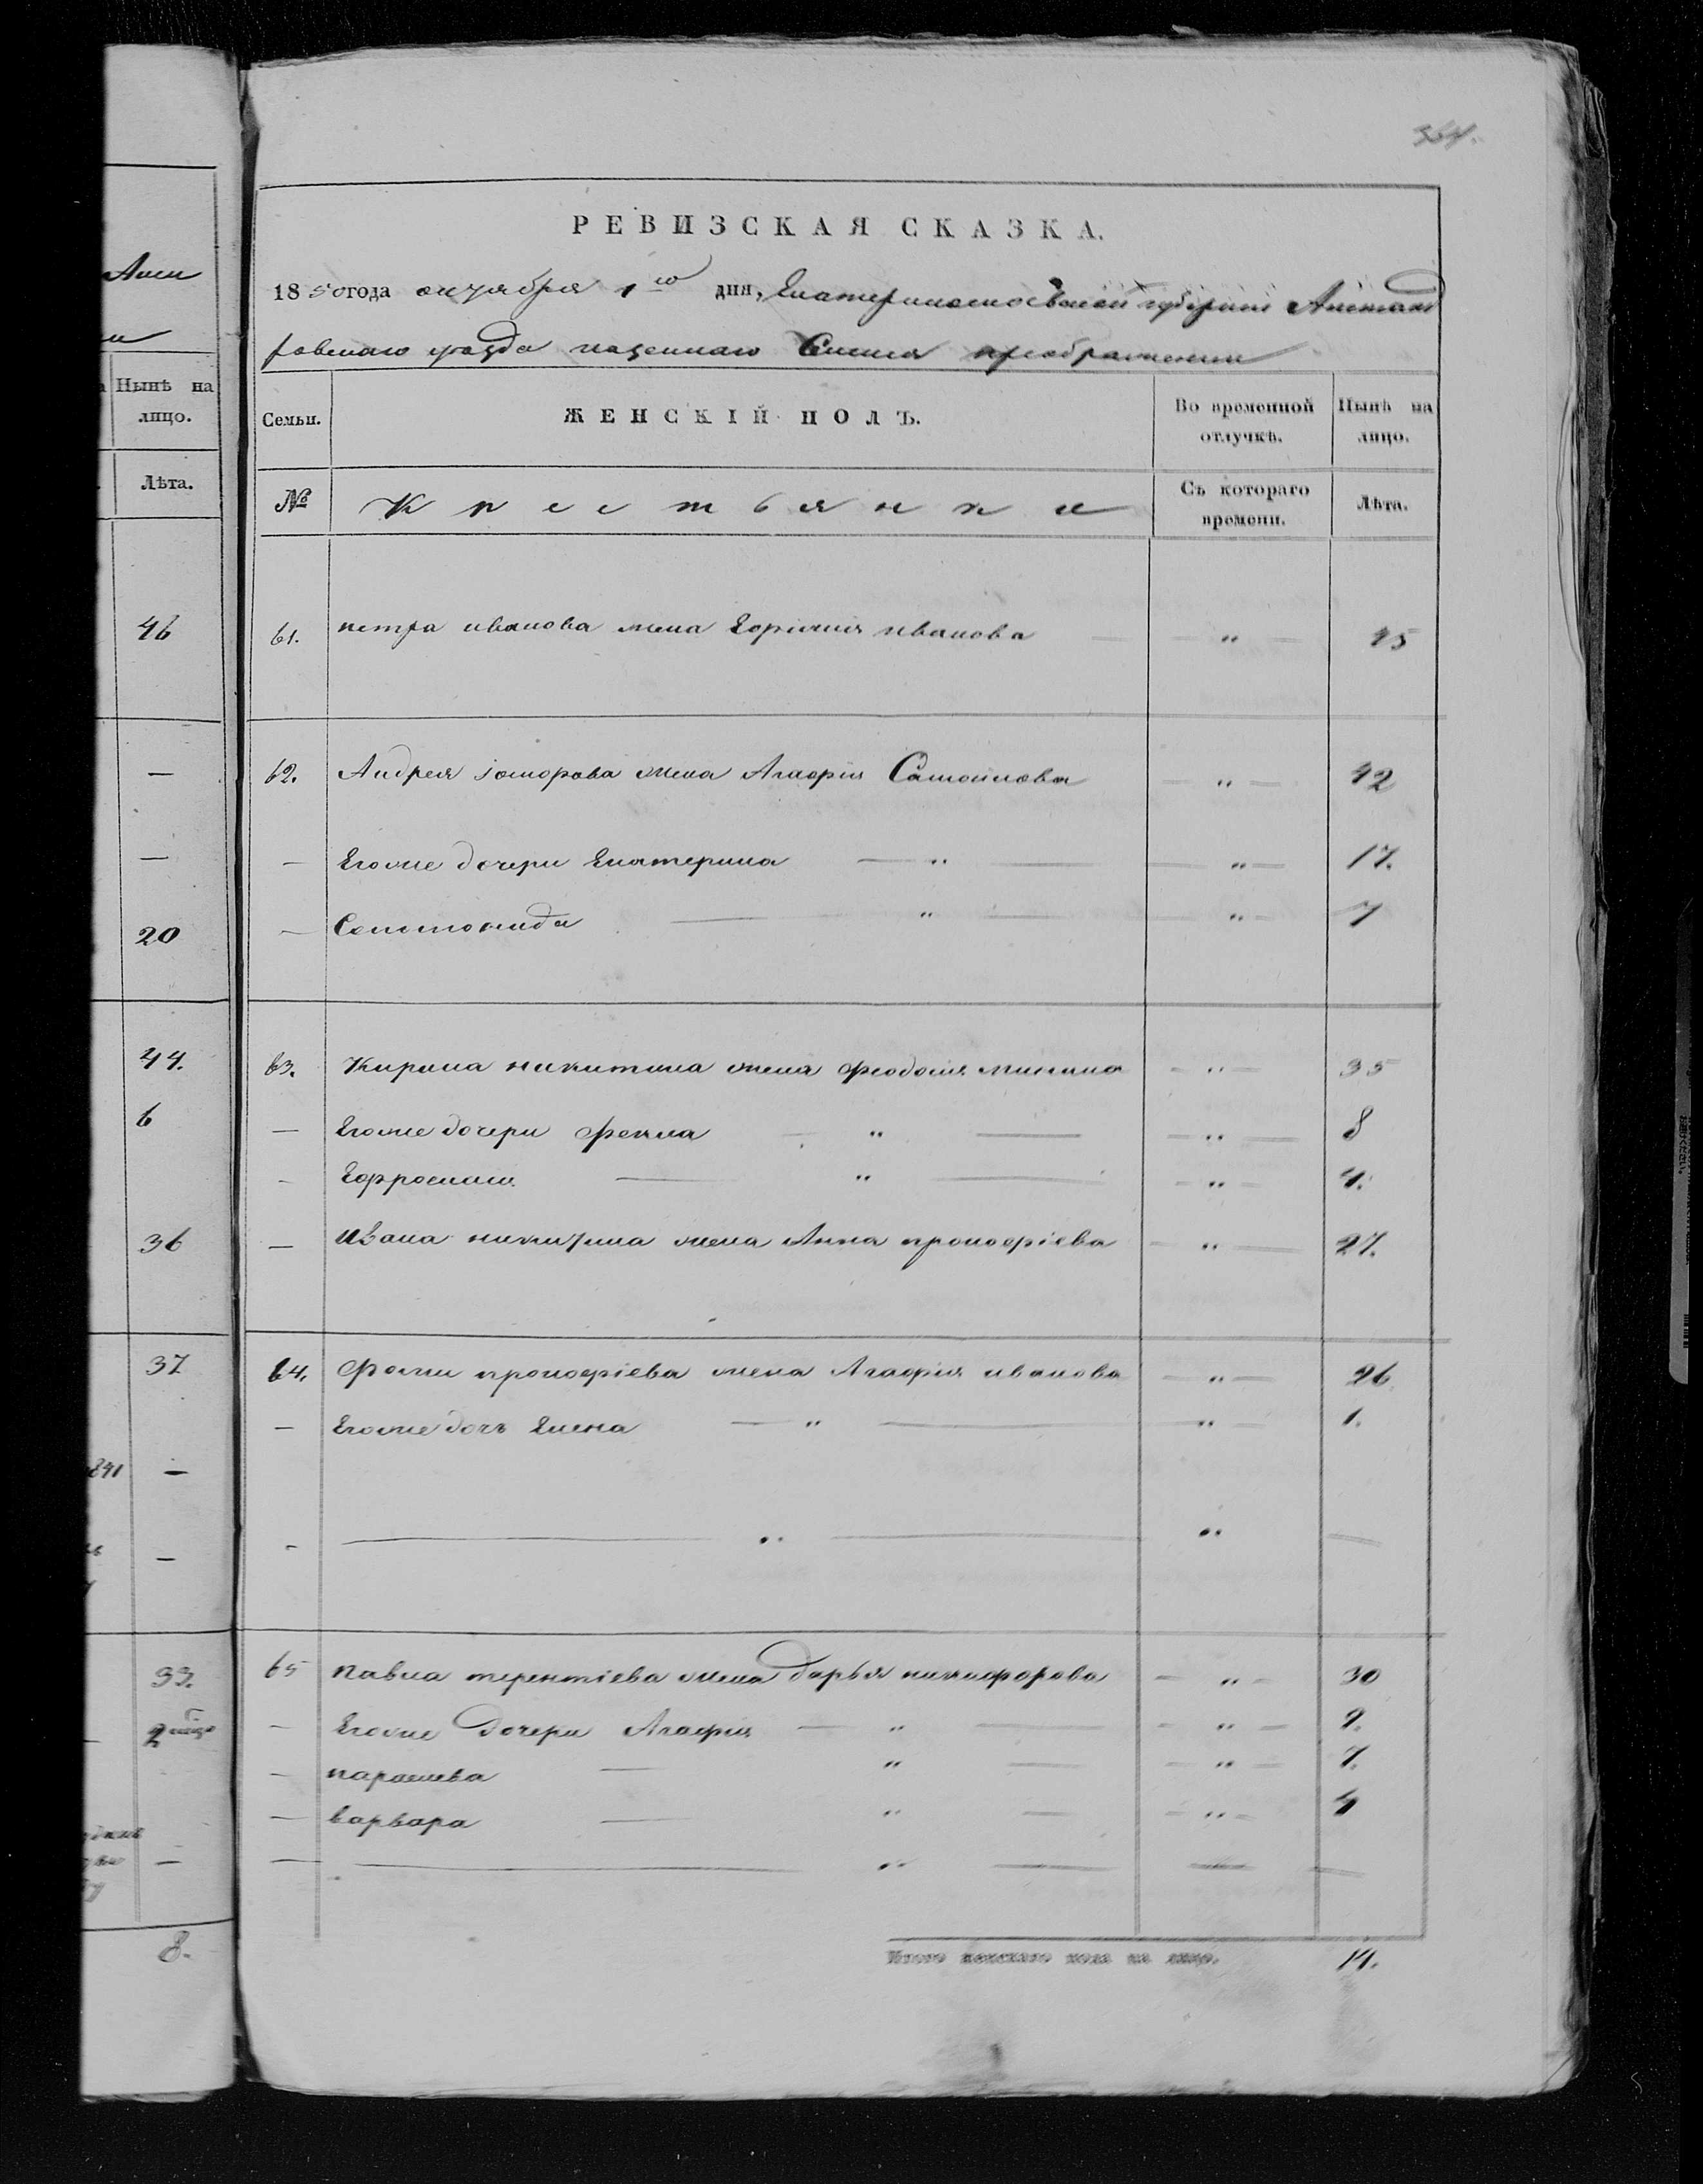 Аши
Нынѣ на
лицо.
Лѣта.
46
—
—
20
44.
6
36
37
841 —
—
33.
2
—
8.
364.
РЕВИЗСКАЯ СКАЗКА.
1850 года октября 1го дня, Екатеринославской губерніи Александ
ровскаго уезда казеннаго Селенія преображенки
Семьи. ЖЕНСКІЙ ПОЛЪ. Во временной отлучкѣ. Нынѣ на лицо.
№ Крестьянки Съ котораго времени. Лѣта.
61. петра иванова жена Ефимия иванова — " — 25
62. Андрея жена Агафія Самойлова — " — 42
— Егоже дочери Екатерина — " — — " — 17.
— — " — — " — 7
63. Кирила никитина жена феодосия минина — " — 35
— Егоже дочери фекла — " — — " — 8
— Ефросиния — " — — " — 4.
— ивана никитина жена Анна прокофіева — " — 27.
64. Фомы прокофіева жена Агафия иванова — " — 26
— Егоже дочь Елена — " — — " 1.
— — " — " —
65 павла терентіева жена дарья никифорова — " — 30
— Егоже дочери Агафия — " — — " — 9.
— параскева — " — — " — 7.
— варвара — " — — " — 4
— — " — — —
Итого женскаго пола на лицо. 14.